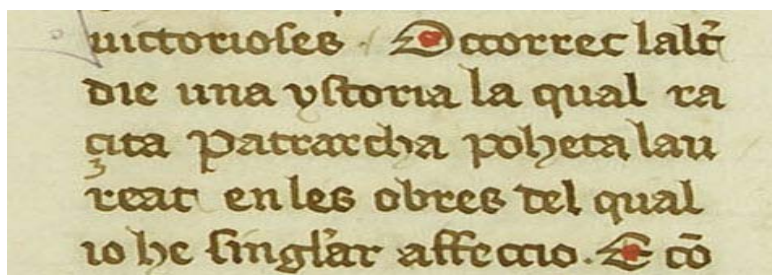 uictorioses. Occorrec laltr̃
die una ystoria la qual ra
çita Patrarcha poheta lau
reat en les obres del qual
io he singl̃ar affeccio. E cō